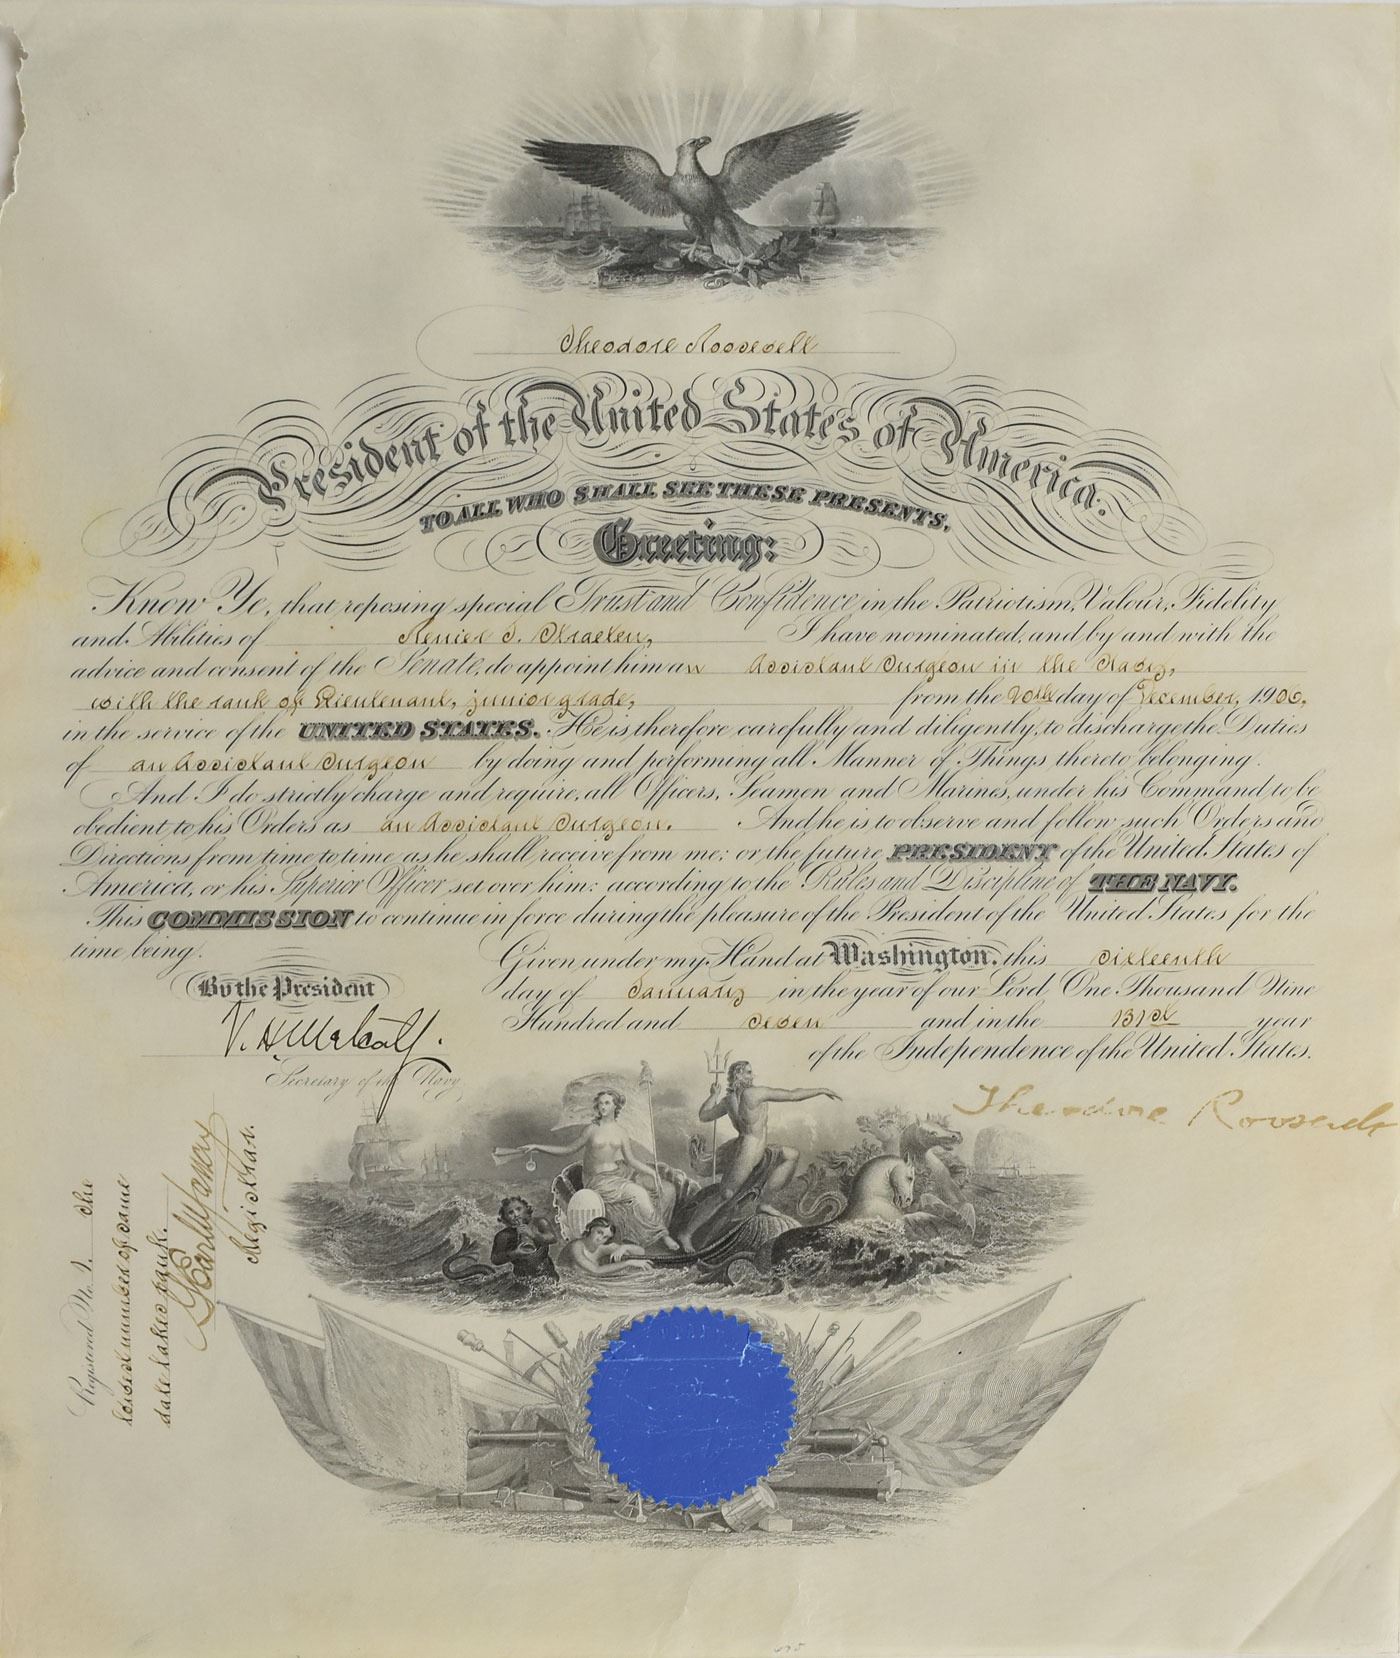 Theodore Roosevelt
President of the United States of America.
TO ALL WHO SHALL SEE THESE PRESENTS,
Greeting:
Know Ye, that reposing special Trust and Confidence in the Patriotism, Valour, Fidelity
and Abilities of Renier J. Straeten, I have nominated, and by and with the
advice and consent of the Senate, do appoint him an Assistant Surgeon in the Navy,
with the rank of Lieutenant, junior grade, from the 20th day of December, 1906,
in the service of the UNITED STATES. He is, therefore, carefully and diligently, to discharge the Duties
of an Assistant Surgeon by doing and performing all Manner of Things thereto belonging.
And I do strictly charge and require, all Officers, Seamen and Marines, under his Command to be
obedient, to his Orders as an Assistant Surgeon. And he is to observe and follow such Orders and
Directions from time to time as he shall receive from me; or the future PRESIDENT of the United States of
America, or his Superior Officer set over him: according to the Rules and Discipline of THE NAVY.
This COMMISSION to continue in force during the pleasure of the President of the United States for the
time being.
Given under my Hand at Washington, this sixteenth
day of January in the year of our Lord One Thousand Nine
Hundred and seven and in the 131st year
of the Independence of the United States.
By the President
V. H. Metcalf.
Secretary of the Navy
Theodore Roosevelt
Registered No. 2. The
lowest number of same
date takes rank.
Registrar.